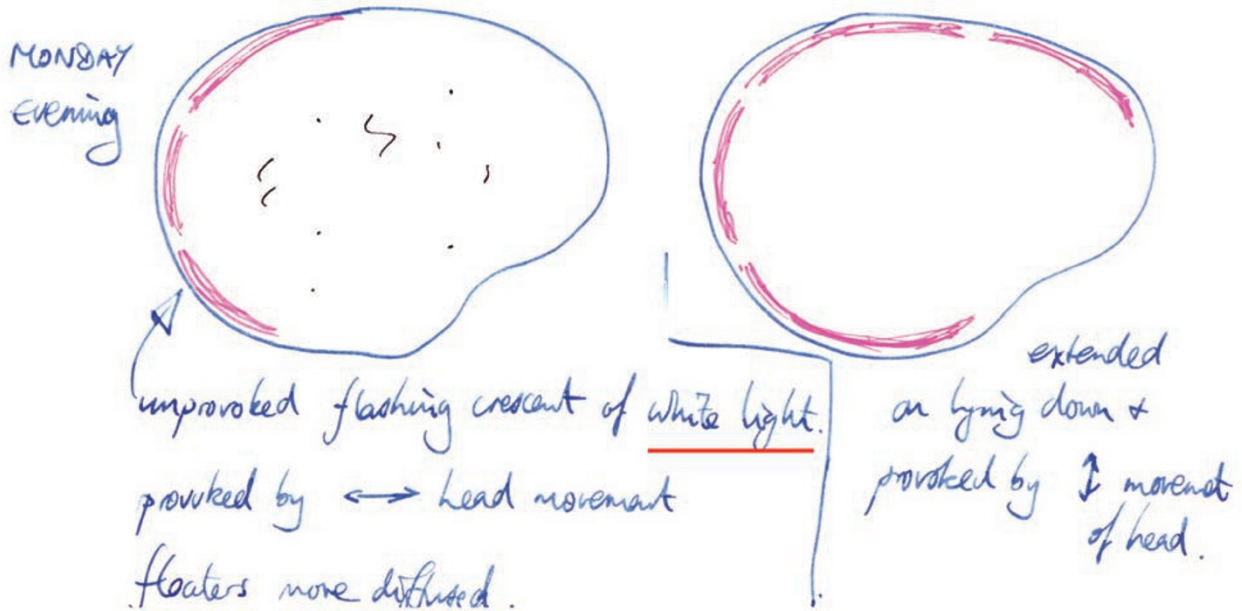 MONDAY
Evening
unprovoked flashing crescent of white light.
provoked by ↔ head movement
floaters more diffused.
extended
on lying down +
provoked by ↕ movemet
of head.